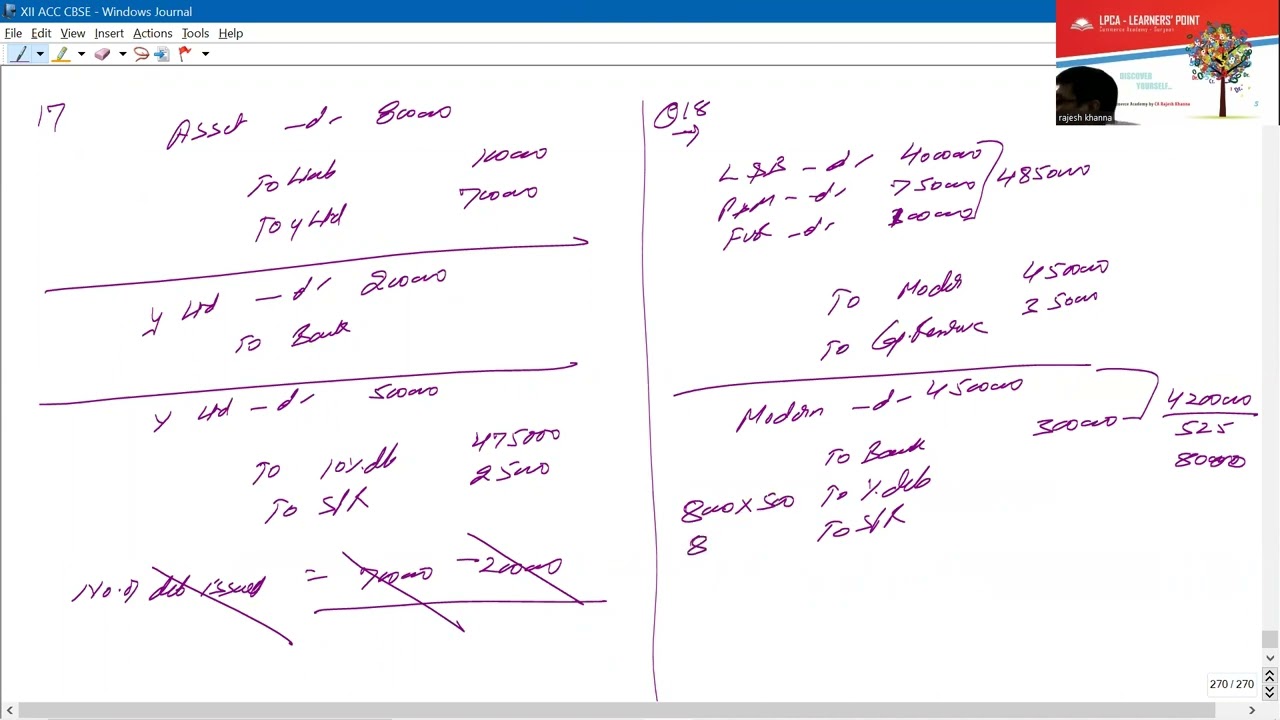 XII ACC CBSE - Windows Journal
File Edit View Insert Actions Tools Help
LPCA - LEARNERS' POINT
Commerce Academy - Gurgaon
DISCOVER
YOURSELF...
merce Academy by CA Rajesh Khanna
rajesh khanna
17
Asset - dr 800000
To Liab 100000
To Y Ltd 700000
Y Ltd - dr 200000
To Bank
Y Ltd - dr 500000
To 10% deb 475000
To S/R 25000
No. of deb issued = 700000 - 200000
Q18
L &B - dr 4000000
P&M - dr 750000
Fur - dr 100000
4850000
To Modern 4500000
To Cap. Reserve 350000
Modern - dr 4500000
To Bank 300000
4200000
525
8000
8000 X 500 To % deb
8 To S/R
270 / 270